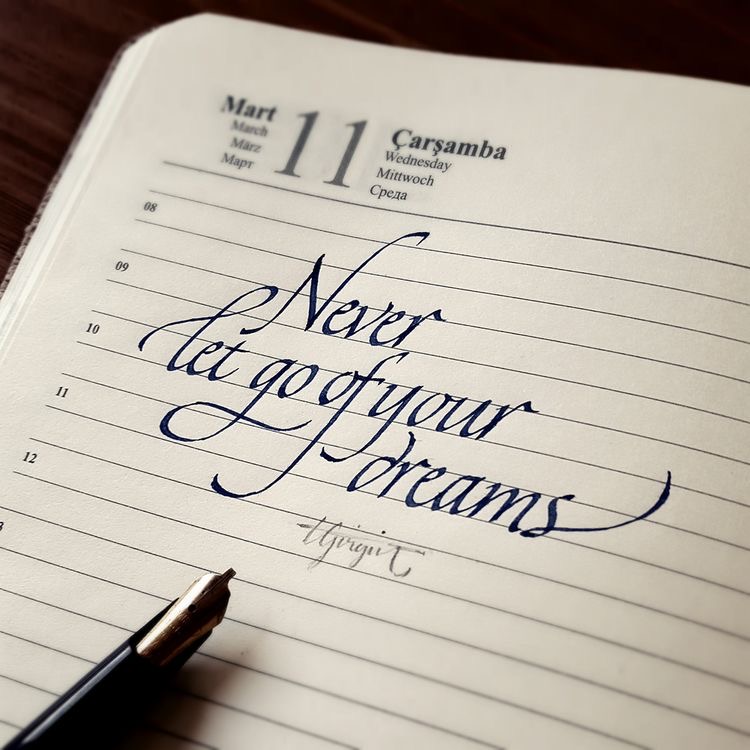 Mart
March
März
Март
11
Çarşamba
Wednesday
Mittwoch
Среда
08
09
10
11
12
Never
let go of your
dreams